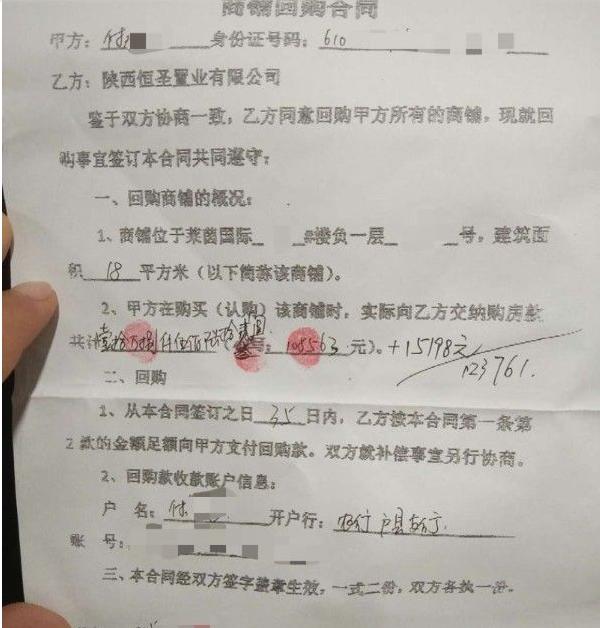 商铺回购合同
甲方：付 身份证号码：610
乙方：陕西恒圣置业有限公司
鉴于双方协商一致，乙方同意回购甲方所有的商铺，现就回
购事宜签订本合同共同遵守：
一、回购商铺的概况：
1、商铺位于莱茵国际 #楼负一层 号，建筑面
积 18 平方米（以下简称该商铺）。
2、甲方在购买（认购）该商铺时，实际向乙方交纳购房款
共计壹拾万捌仟伍佰陆拾叁圆 元）。+15198元
123761.
二、回购
1、从本合同签订之日 35 日内，乙方按本合同第一条第
2 款的金额足额向甲方支付回购款。双方就补偿事宜另行协商。
2、回购款收款账户信息：
户 名：付 开户行：农行户县支行
账 号：
三、本合同经双方签字盖章生效，一式二份，双方各执一份。